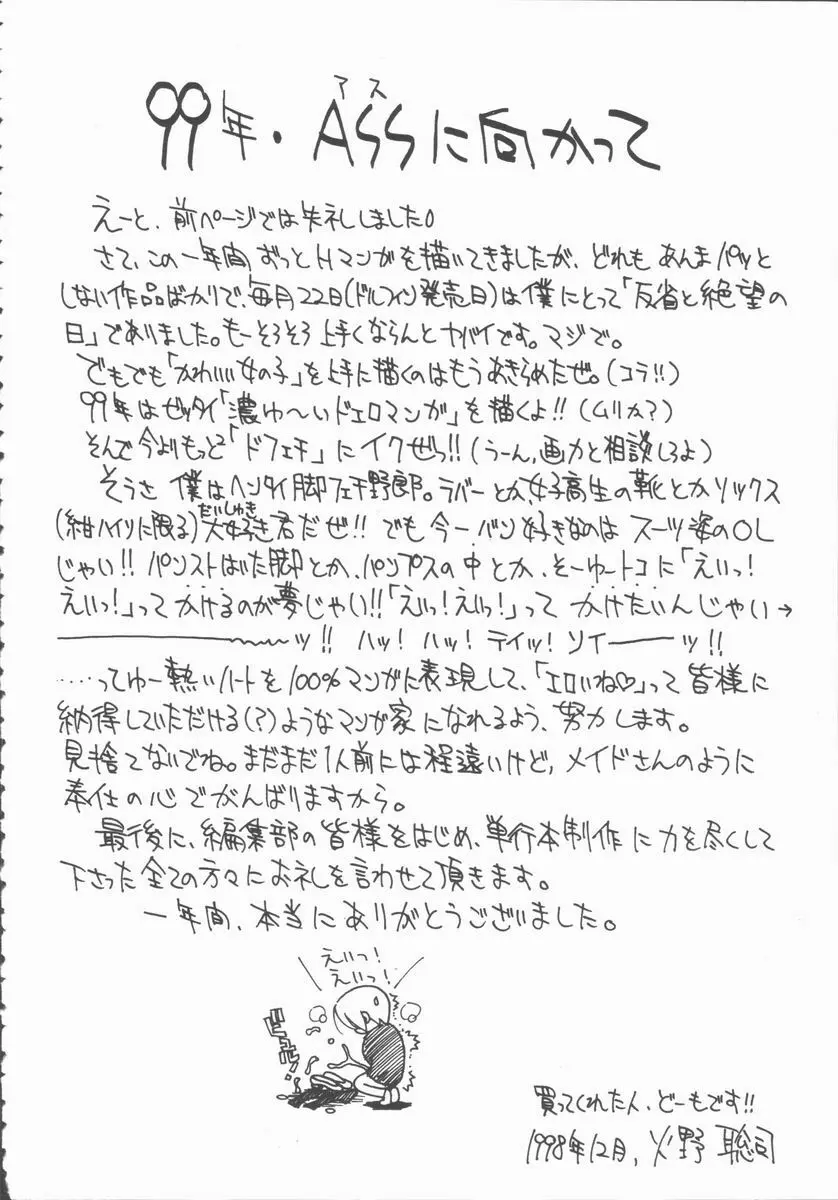 アス
99年・ASSに向かって
えーと、前ページでは失礼しました。
さて、この一年間ずっとHマンガを描いてきましたが、どれもあんまパッと
しない作品ばかりで、毎月22日(ドルフィン発売日)は僕にとって「反省と絶望の
日」でありました。もーそろそろ上手くならんとヤバイです。マジで。
でもでも「かわいい女の子」を上手に描くのはもうあきらめたぜ。(コラ!!)
99年はゼッタイ「濃ゆ〜いドエロマンガ」を描くよ!!(ムリか?)
そんで今よりもっと「ドフェチ」にイクぜっ!!(うーん,画力と相談しろよ)
そうさ 僕はヘンタイ脚フェチ野郎。ラバーとか、女子高生の靴とかソックス
だいしゅき
(紺ハイソに限る)大好き君だぜ!!でも今一バン好きなのは スーツ姿のOL
じゃい!!パンストはいた脚とか、パンプスの中とか、そーゆートコに「えいっ!
えいっ!」ってかけるのが夢じゃい!!「えいっ!えいっ!」って かけたいんじゃい→
ーーーーーッ!! ハッ! ハッ! テイッ! ソイーーーッ!!
……ってゆー熱いハートを100%マンガに表現して、「エロいね♡」って皆様に
納得していただける(?)ようなマンガ家になれるよう、努力します。
見捨てないでね。まだまだ1人前には程遠いけど,メイドさんのように
奉仕の心でがんばりますから。
最後に、編集部の皆様をはじめ、単行本制作に力を尽くして
下さった全ての方々にお礼を言わせて頂きます。
一年間、本当にありがとうございました。
えいっ!
えいっ!
買ってくれた人、どーもです!!
1998年12月, 火野 聡司